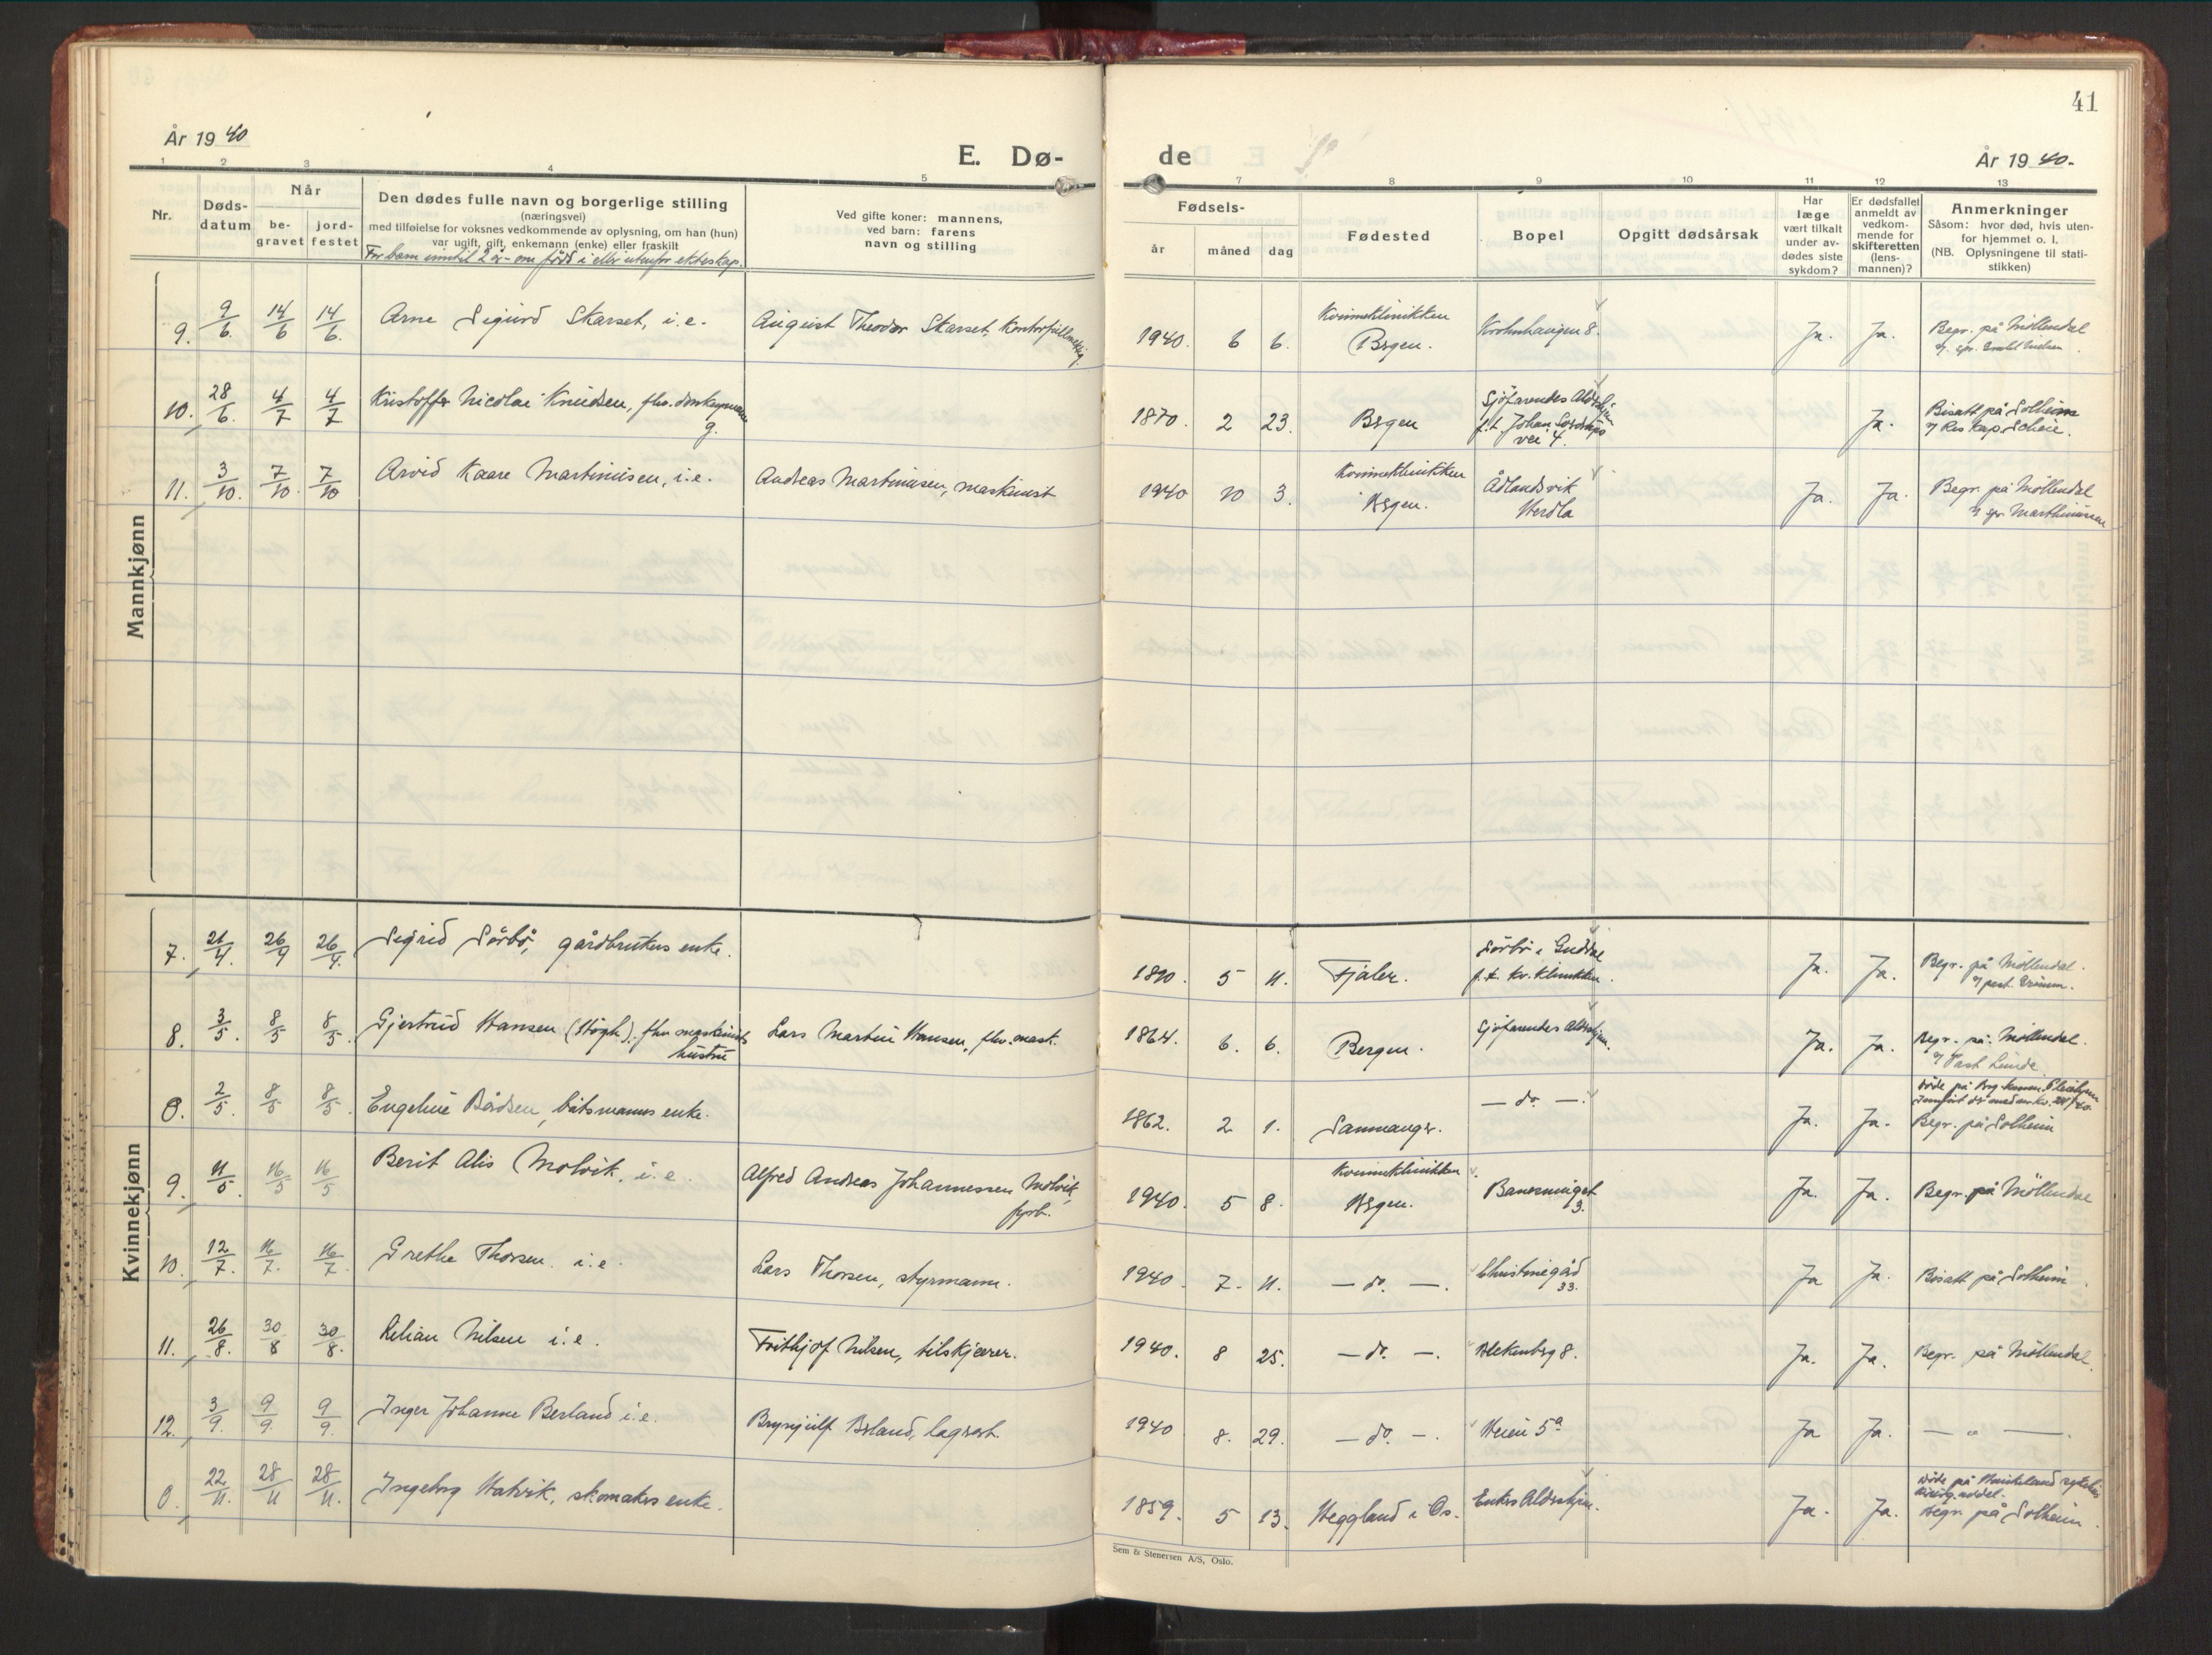 41
År 1940
E. Dø-
de
År 1940.
1 2 3 4 5 7 8 9 10 11 12 13
Nr.
Døds-
datum
Når
be-
gravet
jord-
festet
Den dødes fulle navn og borgerlige stilling
(næringsvei)
med tilføielse for voksnes vedkommende av oplysning, om han (hun)
var ugift, gift, enkemann (enke) eller fraskilt
For barn inntil 2 år - om född i eller utenfor ekteskap.
Ved gifte koner: mannens,
ved barn: farens
navn og stilling
Fødsels-
år måned dag
Fødested
Bopel
Opgitt dødsårsak
Har
læge
vært tilkalt
under av-
dødes siste
sykdom?
Er dødsfallet
anmeldt av
vedkom-
mende for
skifteretten
(lens-
mannen)?
Anmerkninger
Såsom: hvor død, hvis uten-
for hjemmet o. l.
(NB. Oplysningene til stati-
stikken)
Mannkjønn
9. 9/6. 14/6 14/6. Arne Sigurd Skarset, i.e. August Theodor Skarset, 1940. 6 6. Kvinneklinikken
Bergen. Krohnhaugen 8. Ja. Ja. Begr. på Möllendal
10. 28/6. 4/7 4/7. Kristoffer Nicolai Knudsen, fhv.
g. 1870. 2 23. Bergen Sjöfarendes
f.t. Johan
vei 4. Ja. Bisatt på Solheim
v/ Res Kap.
11. 3/10. 7/10 7/10 Arvid Kaare Martinusen, i.e. Andreas Martinusen, maskinist 1940 10 3. Kvinneklinikken
Bergen. Ådlandsvik
Herdla Ja. Ja. Begr. på Möllendal
Kvinnekjønn
7. 21/4. 26/4 26/4. Sigrid Sörbö, gårdbrukers enke. 1890. 5 11. Fjaler. Sörbö i Guddal
f.t. kv. klinikken. Ja. Ja. Begr. på Möllendal.
8. 3/5. 8/5 8/5. Gjertrud Hansen (Högh), fhv maskinists
hustru Lars Martin Hansen, fhv. mask. 1864. 6. 6. Bergen. Sjöfarendes Aldershjem. Ja. Ja. Begr. på Möllendal.
v/ Past Lunde
0. 2/5. 8/5 8/5. Engeline Bårdsen, båtsmanns enke. 1862. 2 1. Samnanger. — do. —. Ja. Ja.
Begr. på Solheim
9. 11/5. 16/5 16/5 Berit Alis Molvik, i.e. Alfred Andreas Johannessen Molvik,
fyrb. 1940. 5 8. Kvinneklinikken.
Bergen. 3. Ja. Ja. Begr. på Möllendal
10. 12/7. 16/7. 16/7. Grethe Thorsen. i.e. Lars Thorsen, styrmann. 1940. 7. 11. — do. —. Christinegård
33. Ja Ja. Bisatt på Solheim.
11. 26/8. 30/8 30/8. Lilian Nilsen i.e. Frithjof Nilsen, tilskjærer. 1940. 8 25. — do. —. Blekenberg 8. Ja. Ja. Begr. på Möllendal.
12. 3/9. 9/9. 9/9. Inger Johanne Berland i.e. Brynjulf Berland, lagerarb. 1940 8. 29. — do. —. Heien 5a Ja Ja. — " —.
0. 22/11. 28/11 28/11. Ingeborg Hatvik, skomakers enke. 1859. 5 13. Heggland i Os. Enkers Aldershjem. Ja. Ja. Döde på Haukeland sykehus
Begr. på Solheim.
Sem & Stenersen A/S, Oslo.